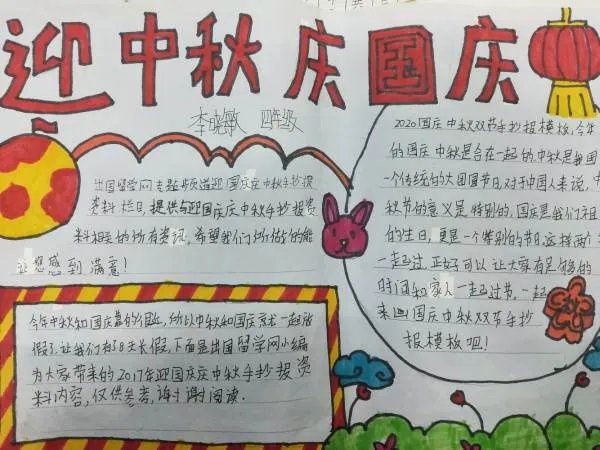 迎中秋庆国庆
李晓敏 四年级
出国留学网专题频道迎国庆庆中秋手抄报
资料栏目,提供与迎国庆庆中秋手抄报资
料相关的所有资讯,希望我们所做的能
让您感到满意!
今年中秋和国庆靠的很近,所以中秋和国庆就一起放
假了,让我们有了8天长假,下面是出国留学网小编
为大家带来的2017年迎国庆庆中秋手抄报资
料内容,仅供参考,谢谢阅读.
2020国庆中秋双节手抄报模板,今年
的国庆中秋是合在一起的,中秋是我国
一个传统的大团圆节日,对于中国人来说,中
秋节的意义是特别的,国庆是我们祖
的生日,更是一个特别的节日,这样两个
一起过,正好可以让大家有足够的
时间和家人一起过节,一起
来画国庆中秋双节手抄
报模板吧!